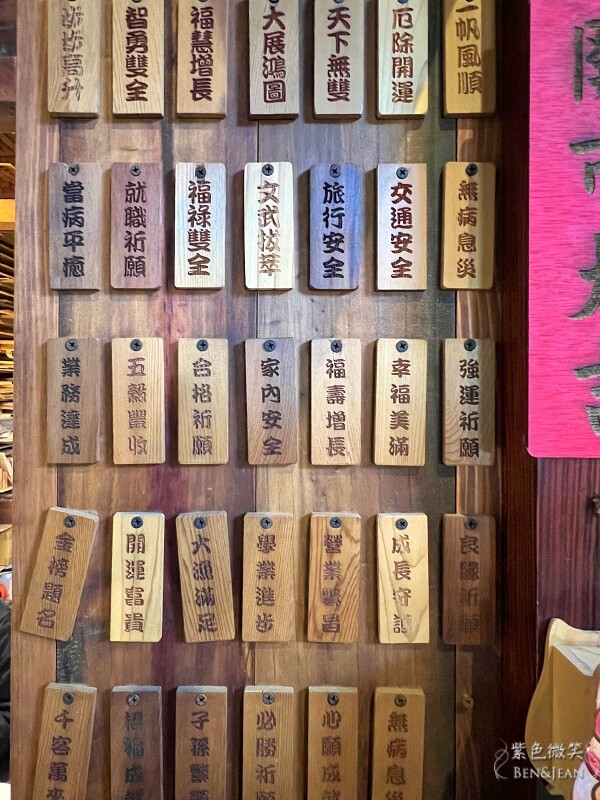 步步高升
智勇雙全
福慧增長
大展鴻圖
天下無雙
厄除開運
一帆風順
當病平癒
就職祈願
福祿雙全
文武拔萃
旅行安全
交通安全
無病息災
業務達成
五穀豐收
合格祈願
家內安全
福壽增長
幸福美滿
強運祈願
金榜題名
開運富貴
大漁滿足
學業進步
營業繁昌
成長守護
良緣祈願
千客萬來
招福成就
子孫繁
必勝祈願
心願成就
無病息災
開市大吉
紫色微笑
BEN&JEAN